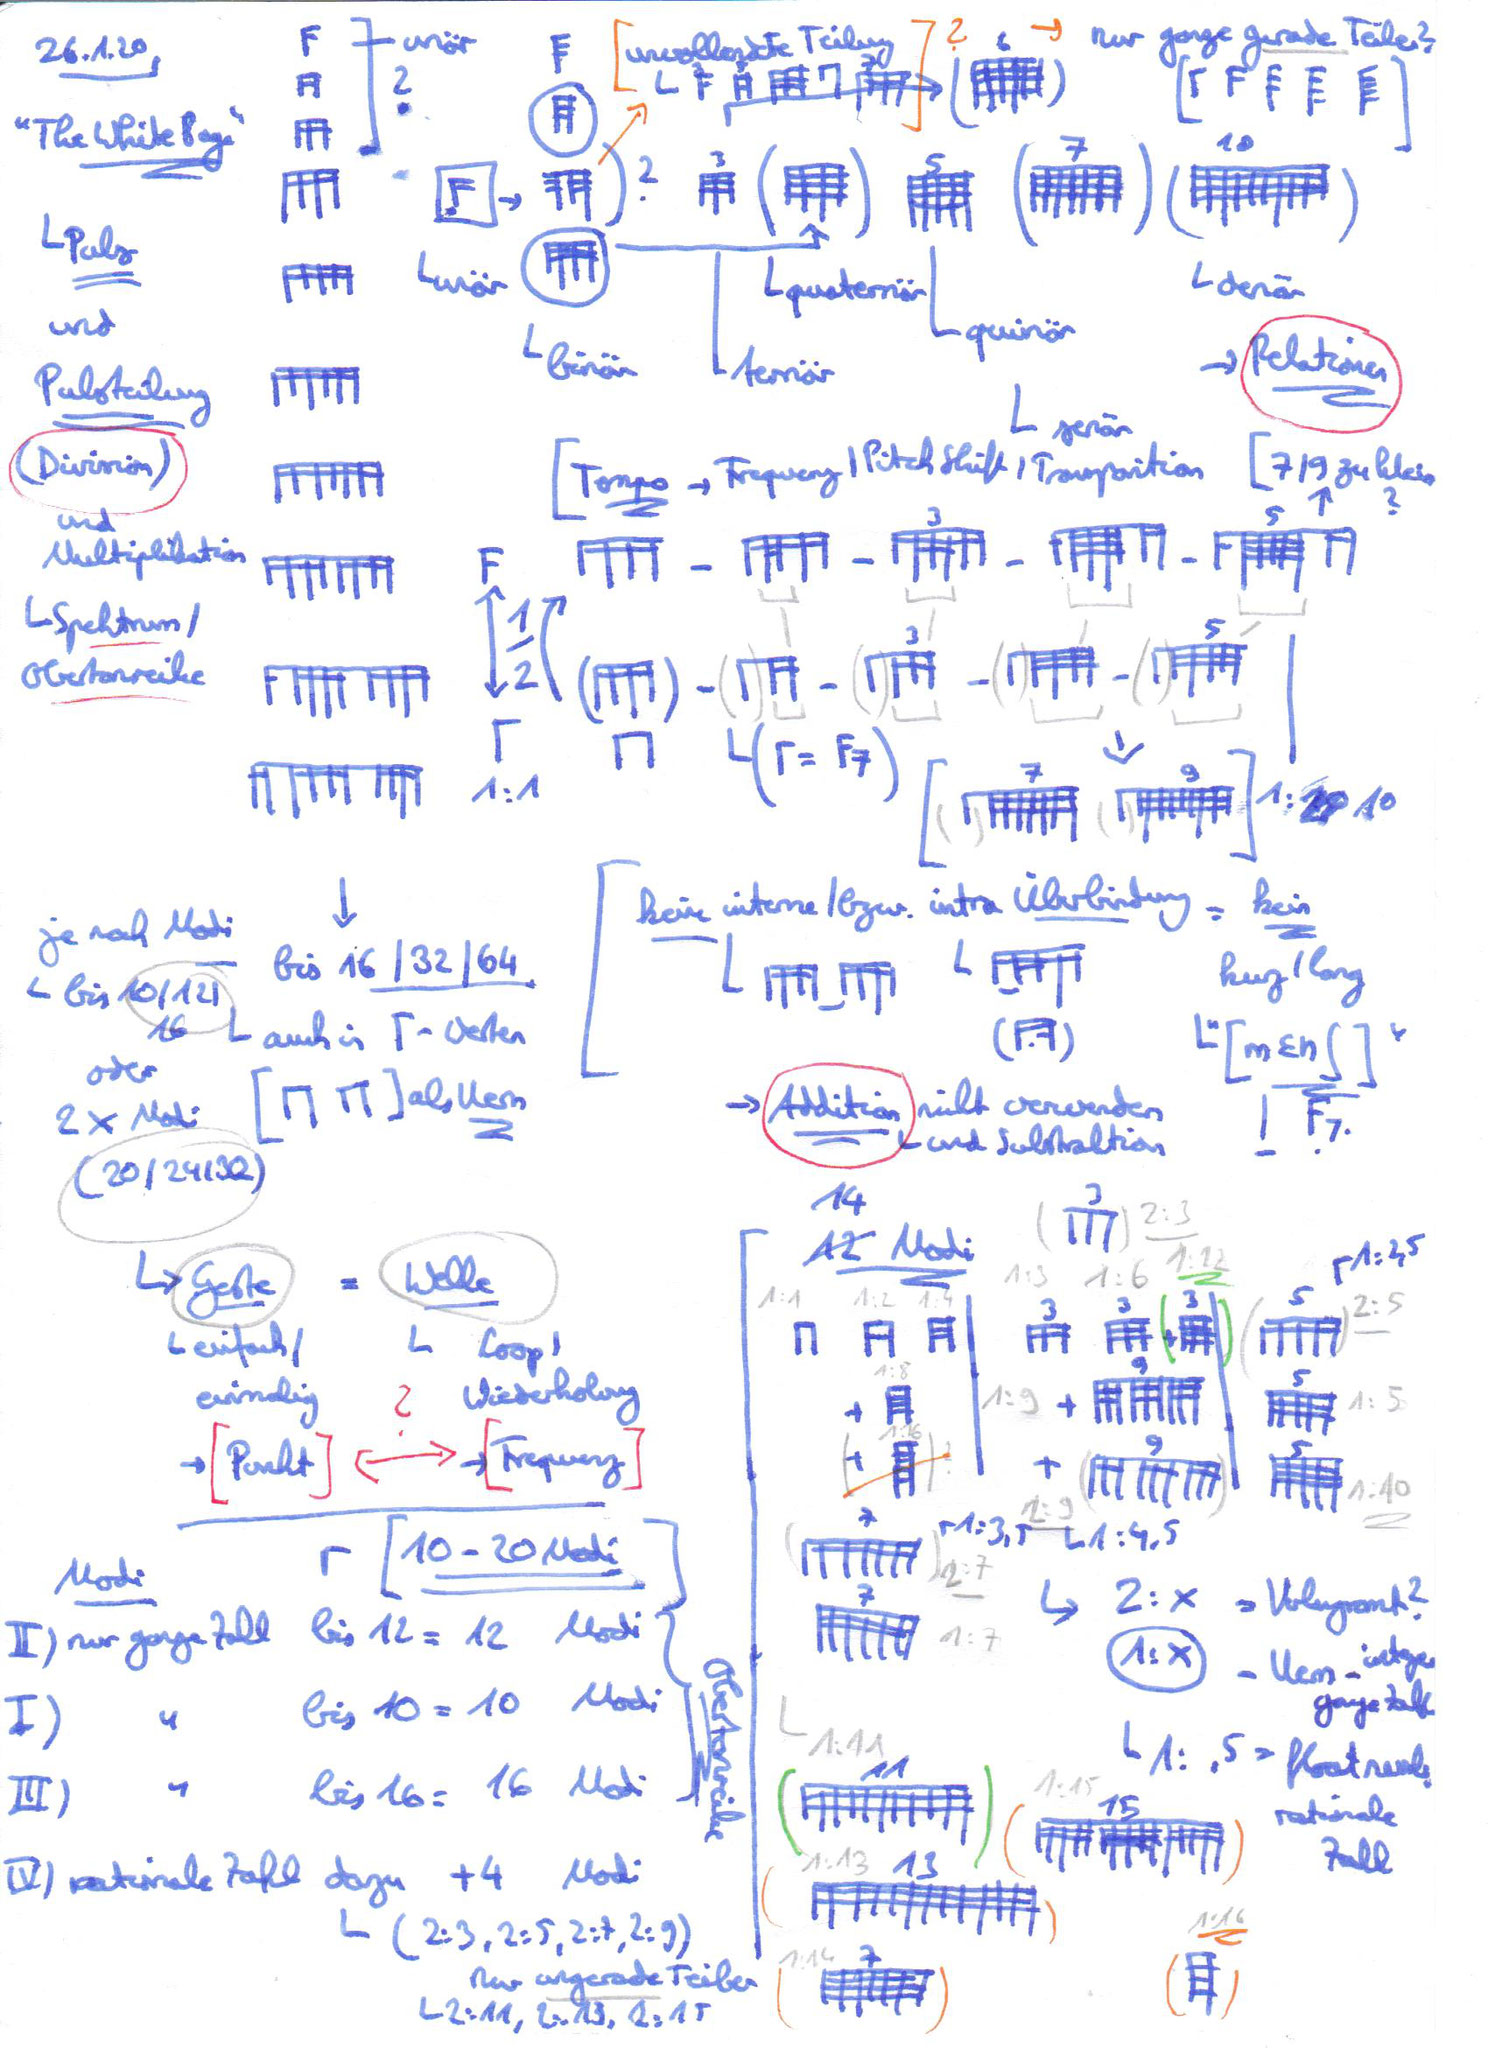 26.1.20,
"The White Page"
└ Puls
und
Pulsteilung
(Division)
und
Multiplikation
└ Spektrum /
Obertonreihe
unär
?
[unvollendete Teilung] ?
6
→ nur ganze gerade Teiler?
?
3
5
7
10
└ unär
└ binär
└ ternär
└ quaternär
└ quinär
└ senär
└ denär
→ Relationen
[Tempo → Frequenz / Pitch Shift / Transposition
[7/9 zu klein
?
3
5
1
2
1:1
3
5
7
9
1:10
je nach Modi
└ bis 10/12/
16
oder
2 x Modi
(20/24/32)
↓
bis 16/32/64
└ auch in Γ-Werten
[ ] als Kern
keine interne / bzw. intra Überbindung = kein
kurz / lang
└ "[mɛnʃ]"
→ Addition nicht verwenden
└ und Subtraktion
└> Geste = Welle
└ einfach /
einmalig
→ [Punkt]
?
└ Loop /
Wiederholung
→ [Frequenz]
Modi
[10 - 20 Modi
II) nur ganze Zahl bis 12 = 12 Modi
I) " bis 10 = 10 Modi
III) " bis 16 = 16 Modi
Obertonreihe
IV) rationale Zahl dazu +4 Modi
└ (2:3, 2:5, 2:7, 2:9)
nur ungerade Teiler
└ 2:11, 2:13, 2:15
14
12 Modi
3
2:3
1:1
1:2
1:4
1:3
1:6
1:12
1:2,5
3
3
3
5
2:5
1:8
+
1:9
+
9
5
1:5
1:16
+
+
9
5
1:10
2:9
7
1:3,5
└ 1:4,5
2:7
7
1:7
└> 2:x = Vergrößert?
1:x - Kern - integer
ganze Zahl
└ 1: ,5 = float
rationale
Zahl
└ 1:11
11
1:15
15
1:13
13
1:14
7
1:16